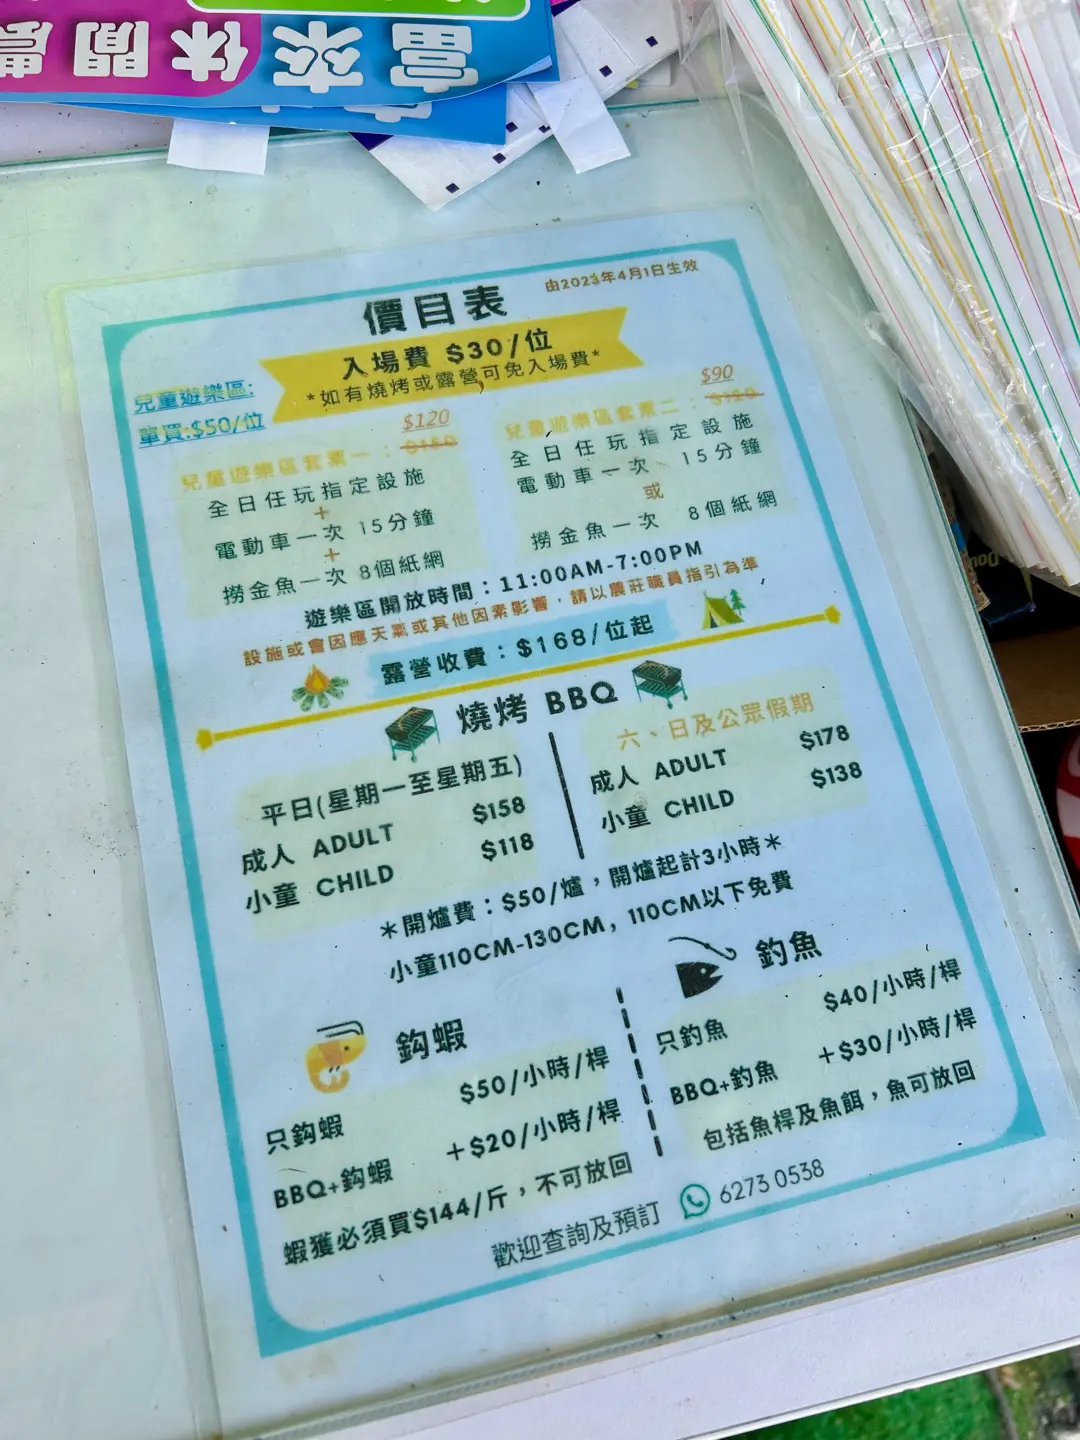 富來休閒農
由2023年4月1日生效
價目表
入場費 $30/位
*如有燒烤或露營可免入場費*
兒童遊樂區:
單買:$50/位
$120
兒童遊樂區套票一：$150
全日任玩指定設施
+
電動車一次 15分鐘
+
撈金魚一次 8個紙網
$90
兒童遊樂區套票二：$120
全日任玩指定設施
電動車一次 15分鐘
或
撈金魚一次 8個紙網
遊樂區開放時間：11:00AM-7:00PM
設施或會因應天氣或其他因素影響，請以農莊職員指引為準
露營收費：$168/位起
燒烤 BBQ
平日(星期一至星期五)
成人 ADULT $158
小童 CHILD $118
六、日及公眾假期
成人 ADULT $178
小童 CHILD $138
*開爐費：$50/爐，開爐起計3小時*
小童110CM-130CM, 110CM以下免費
鈎蝦
只鈎蝦 $50/小時/桿
BBQ+鈎蝦 +$20/小時/桿
蝦獲必須買$144/斤，不可放回
釣魚
只釣魚 $40/小時/桿
BBQ+釣魚 +$30/小時/桿
包括魚桿及魚餌，魚可放回
歡迎查詢及預訂 6273 0538